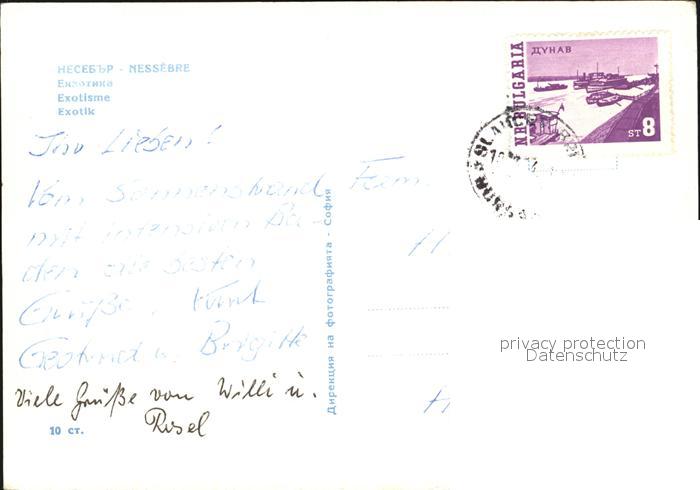 НЕСЕБЪР - NESSÈBRE
Екзотика
Exotisme
Exotik
NR BULGARIA
ДУНАВ
ST 8
Ihr Lieben!
Vom Sonnenstrand Fam.
mit intensiven Ba-
den die besten
Grüße, Kurt
Gertrud u. Brigitte
Viele Grüße von Willi u.
Rosel
10 ст.
Дирекция на фотографията - София
privacy protection
Datenschutz